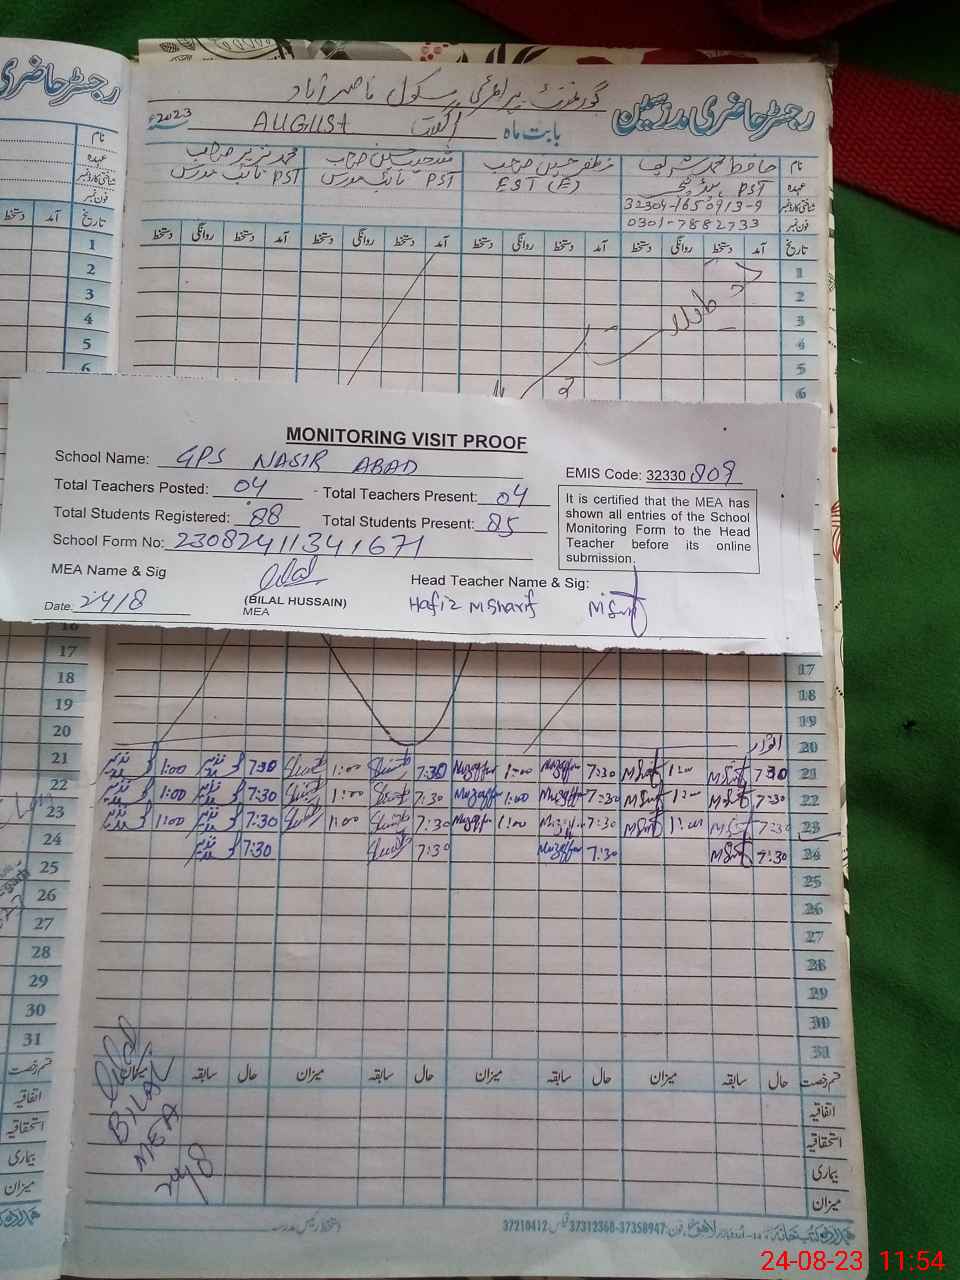 رجسٹر حاضری
گورنمنٹ پرائمری سکول ناصر آباد
رجسٹر حاضری مدرسین
بابت ماہ اگست AUGUST 2023ء
نام حافظ محمد شریف مظفر حسین صاحب حسین صاحب محمد نذیر صاحب
عہدہ PST ہیڈ ٹیچر EST (E) PST نائب مدرس PST نائب مدرس
شناختی کارڈ نمبر 32304-1650913-9
فون نمبر 0301-7882733
تاریخ آمد دستخط روانگی دستخط آمد دستخط روانگی دستخط آمد دستخط روانگی دستخط آمد دستخط روانگی دستخط
نام
عہدہ
شناختی کارڈ نمبر
فون نمبر
تاریخ آمد دستخط
1
2
3
4
5
6
1
2
3
4
5
6
MONITORING VISIT PROOF
School Name: GPS NASIR ABAD
EMIS Code: 32330 809
Total Teachers Posted: 04 - Total Teachers Present: 04
Total Students Registered: 88 Total Students Present: 85
School Form No: 23082411341671
It is certified that the MEA has
shown all entries of the School
Monitoring Form to the Head
Teacher before its online
submission.
MEA Name & Sig
(BILAL HUSSAIN)
MEA
Head Teacher Name & Sig:
Hafiz M Sharif M Sharif
Date. 24/8
16
17
18
19
20
21
22
23
24
25
26
27
28
29
30
31
17
18
19
20 اتوار
21 7:30 M Sharif 1:00 M Sharif 7:30 Muzaffar 1:00 Muzaffar 7:30 1:00 7:30 نذیر 1:00 نذیر
22 7:30 M Sharif 1:00 M Sharif 7:30 Muzaffar 1:00 Muzaffar 7:30 1:00 7:30 نذیر 1:00 نذیر
23 7:30 M Sharif 1:00 M Sharif 7:30 Muzaffar 1:00 Muzaffar 7:30 1:00 7:30 نذیر 1:00 نذیر
24 7:30 M Sharif 7:30 Muzaffar 7:30 7:30 نذیر
25
26
27
28
29
30
31
قسم رخصت حال سابقہ میزان حال سابقہ میزان حال سابقہ میزان حال سابقہ میزان
اتفاقیہ
استحقاقیہ
بیماری
میزان
قسم رخصت
اتفاقیہ
استحقاقیہ
بیماری
میزان
BILAL
MEA
24/8
37312368-37358947 37210412
24-08-23 11:54